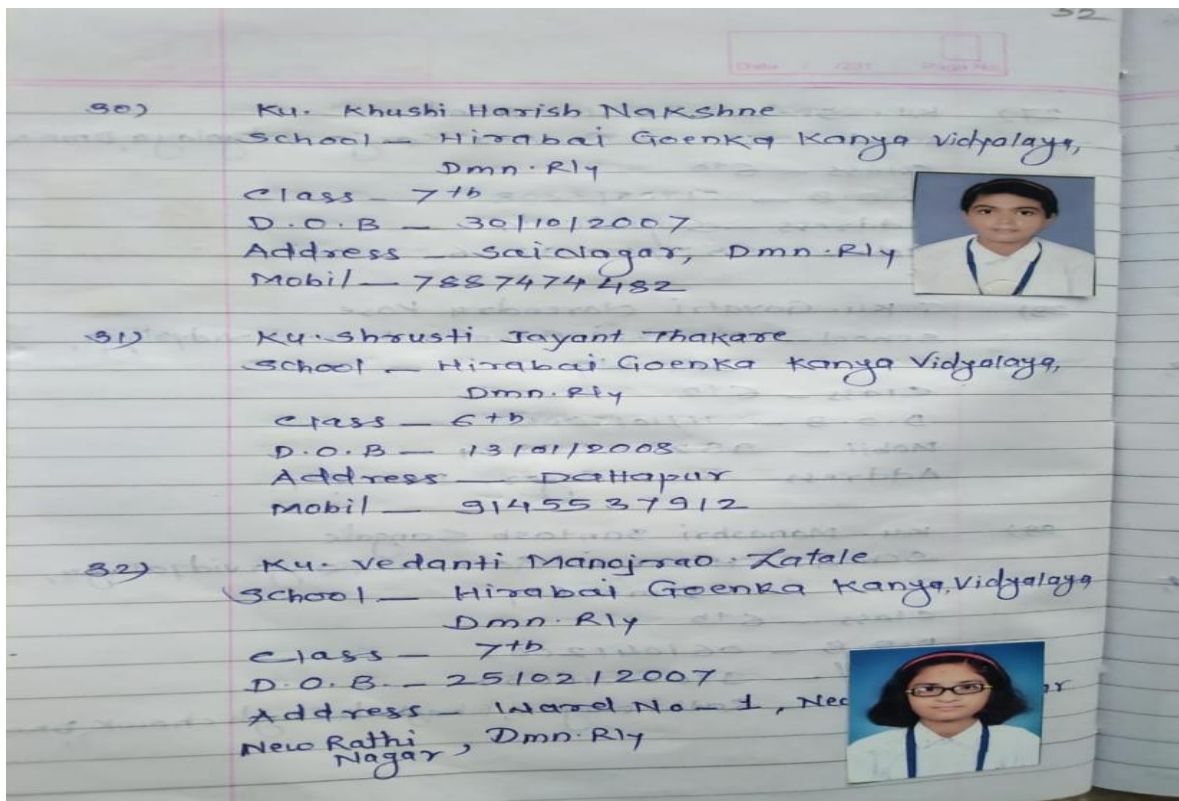 32
30) Ku. Khushi Harish Nakshne
School - Hirabai Goenka Kanya Vidyalaya,
Dmn. Rly
Class - 7th
D.O.B - 30/10/2007
Address - Sai Nagar, Dmn. Rly
Mobil - 7887474482
31) Ku. Shrusti Jayant Thakare
School - Hirabai Goenka Kanya Vidyalaya,
Dmn. Rly
Class - 6th
D.O.B - 13/01/2008
Address - Dattapur
Mobil - 9145537912
32) Ku. Vedanti Manojrao Zatale
School - Hirabai Goenka Kanya Vidyalaya
Dmn. Rly
Class - 7th
D.O.B. - 25/02/2007
Address - Ward No - 1,
New Rathi Nagar, Dmn. Rly